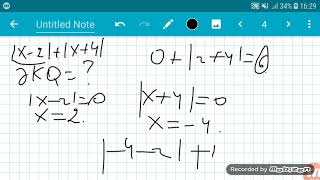 16:29
34%
Untitled Note
4
|x-2|+|x+4|
ƏKQ=?
|x-2|=0
x=2.
0+|2+4|=6
|x+4|=0
x=-4
|-4-2|+1
Recorded by
Mobizen